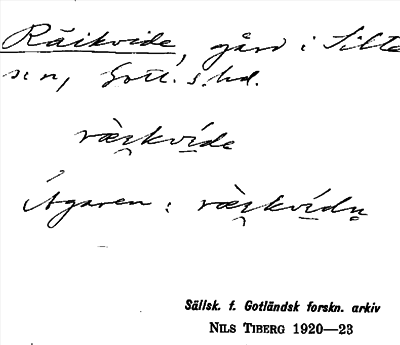 Räikvide, gård i Silte
sn, Gotl. s. hd.
ræi̯kví̱de
Ägaren: ræi̯kví̱dn̥
Sällsk. f. Gotländsk forskn. arkiv
NILS TIBERG 1920—23